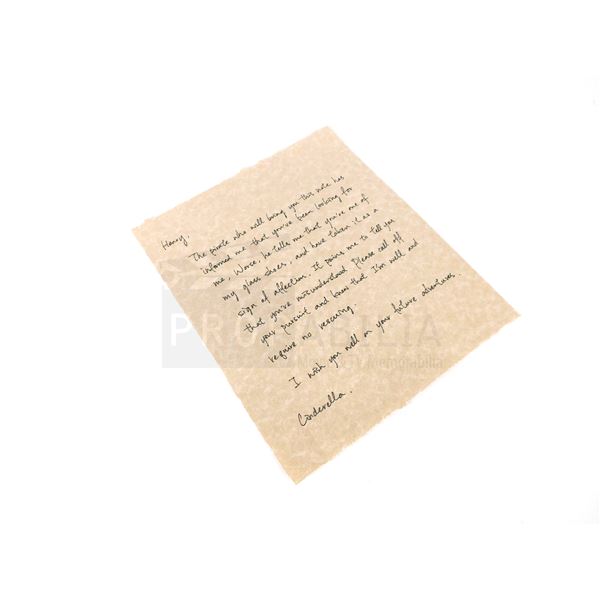 Henry,
The pirate who will bring you this note has
informed me that you've been looking for
me, Worse, he tells me that you've one of
my glass shoes, and have taken it as a
sign of affection. It pains me to tell you
that you've misunderstood. Please call off
your pursuit and know that I'm well and
require no rescuing.
I wish you well on your future adventures.
Cinderella.
PROPABILIA
Memorabilia